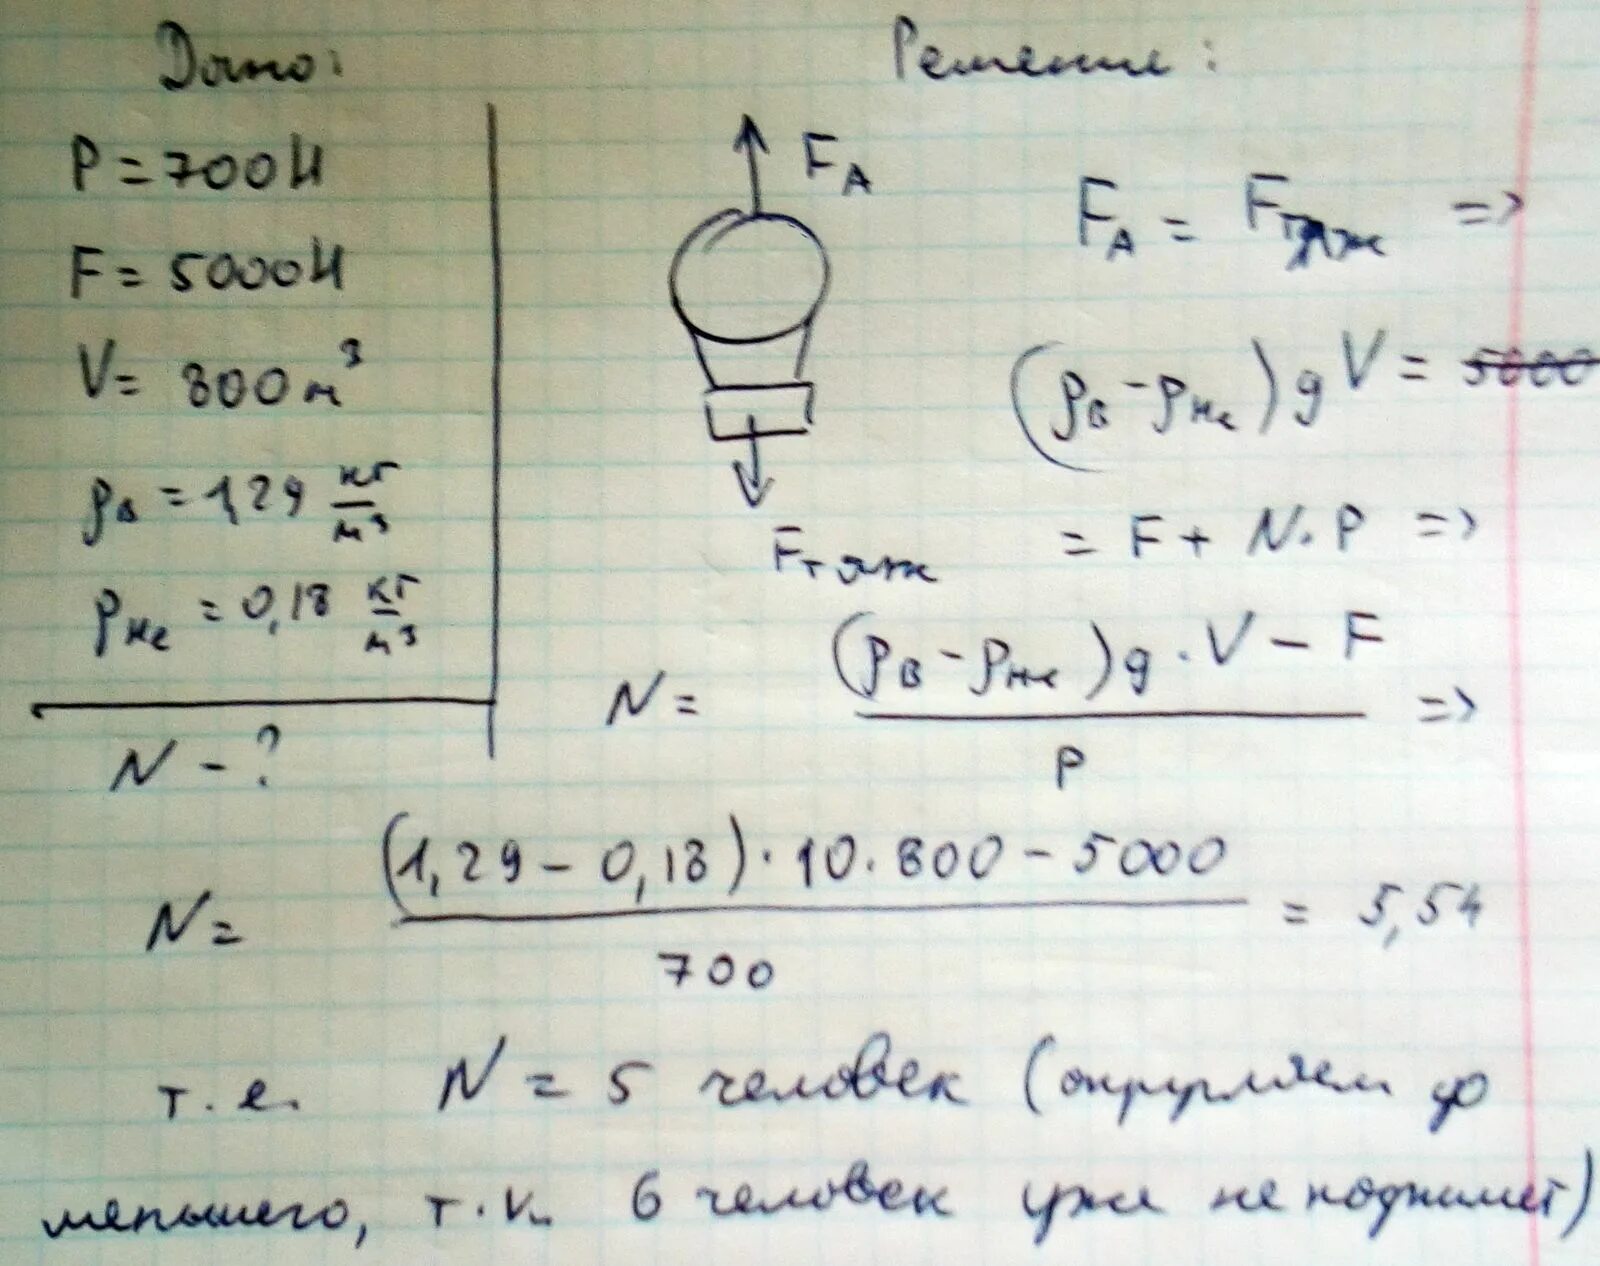 Дано:
P = 700 Н
F = 5000 Н
V = 800 м³
ρв = 1,29 кг/м³
ρне = 0,18 кг/м³
N - ?
Решение:
FА
Fтяж
FА = Fтяж =>
(ρв - ρне) g V = 5000
= F + N·P =>
N = ((ρв - ρне) g · V - F) / P =>
N = ((1,29 - 0,18) · 10 · 800 - 5000) / 700 = 5,54
т.е. N = 5 человек (округляем до
меньшего, т.к. 6 человек уже не поднимет)